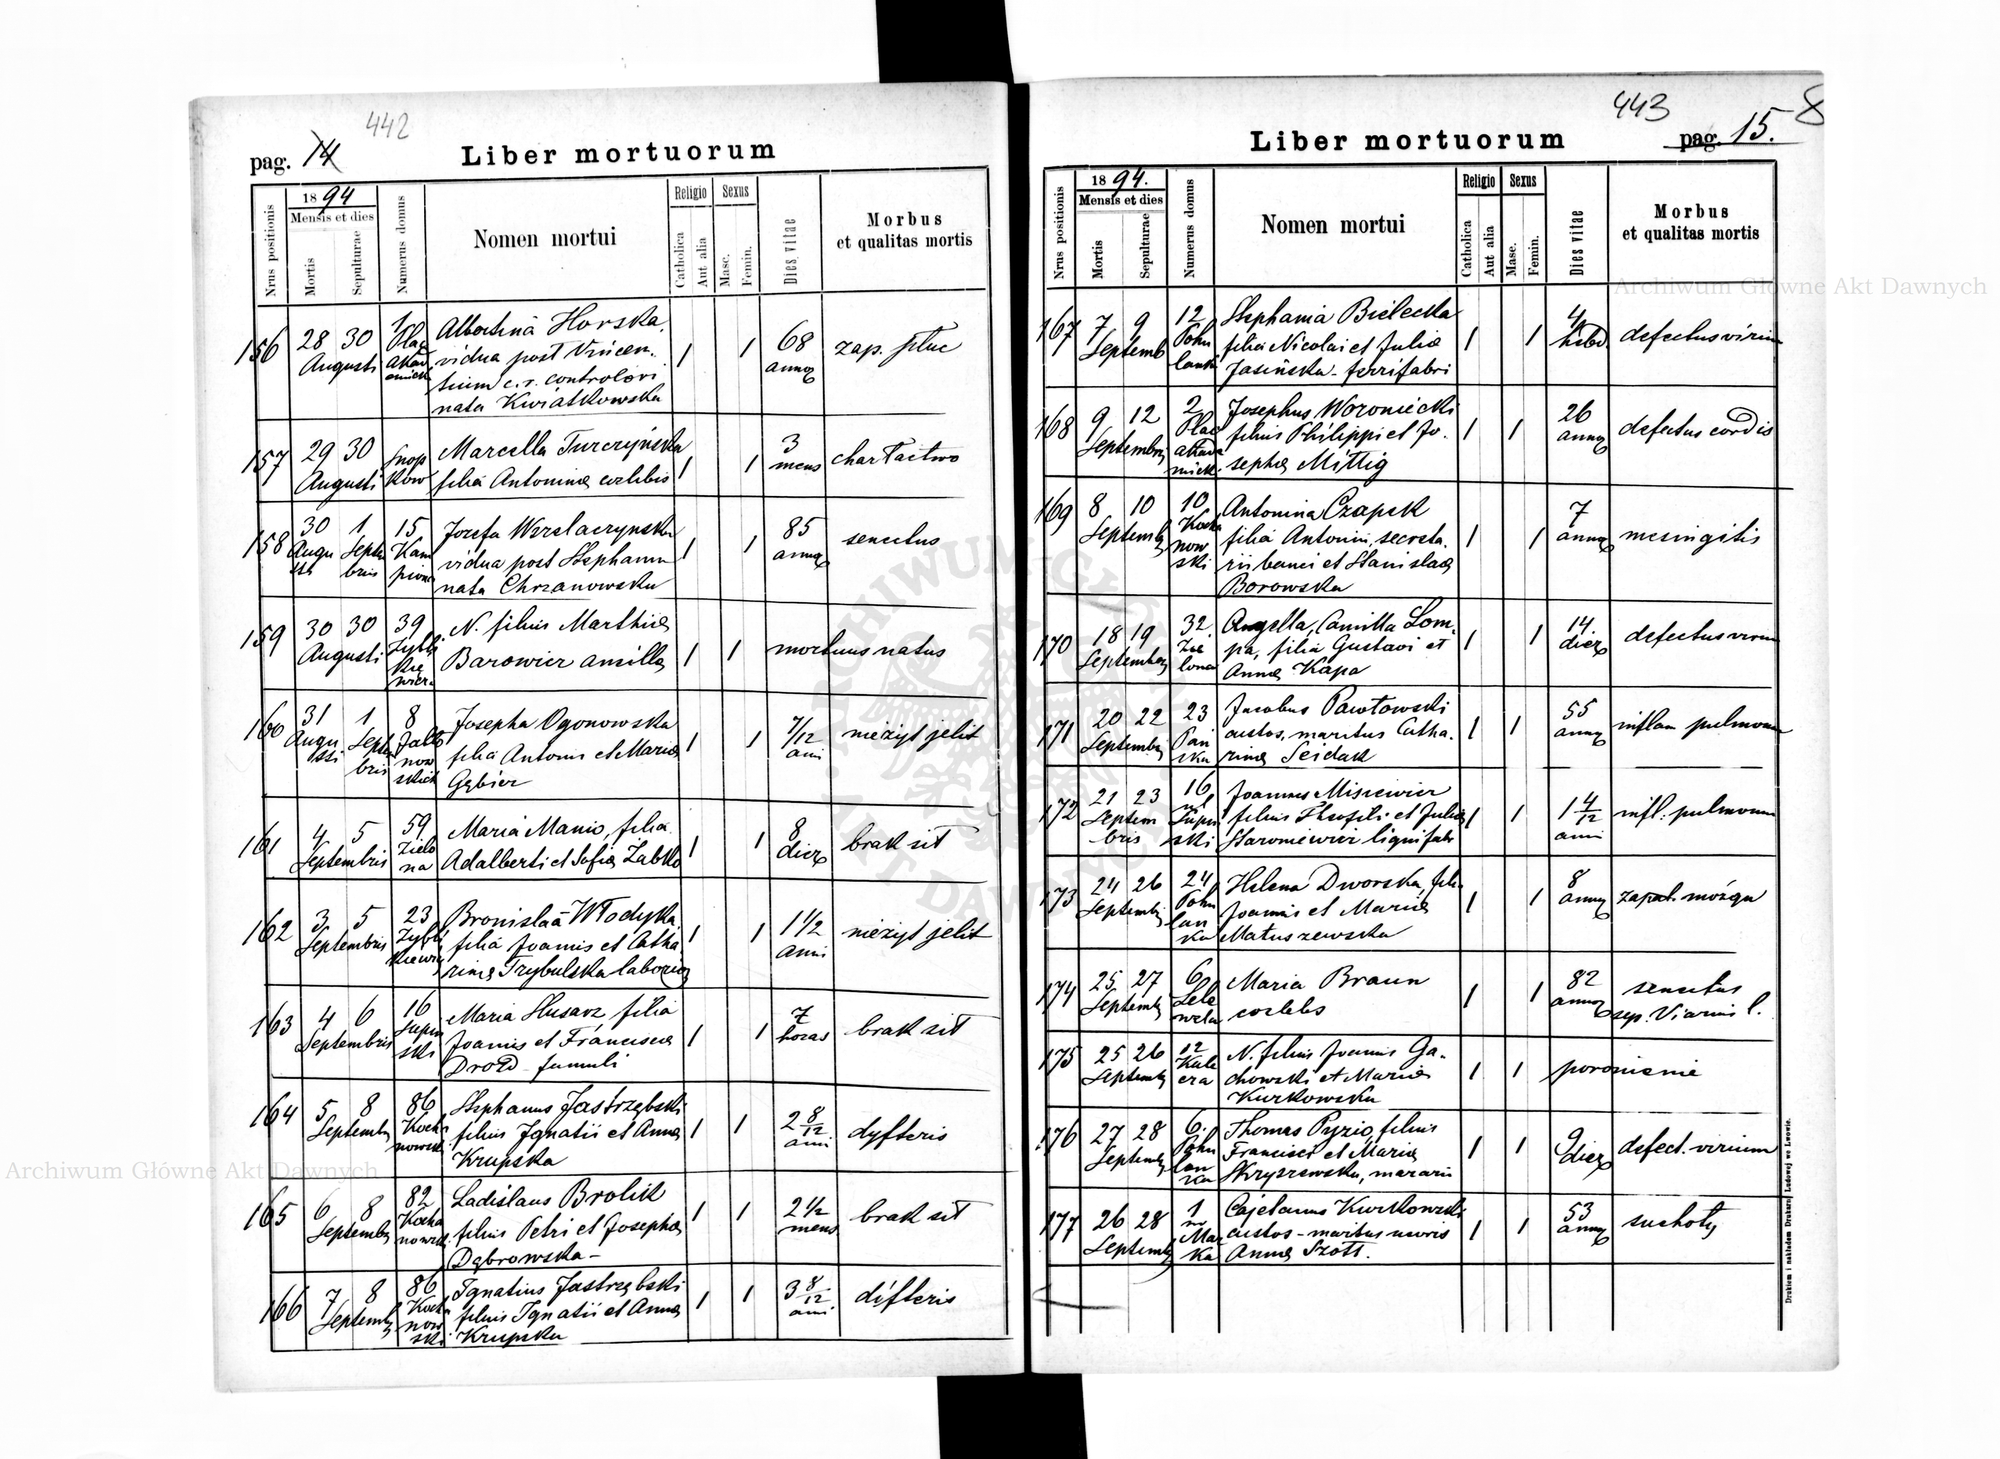 442
pag. 14
Liber mortuorum
Nrus positionis
1894
Mensis et dies
Mortis
Sepulturae
Numerus domus
Nomen mortui
Religio
Catholica
Aut alia
Sexus
Masc.
Femin.
Dies vitae
Morbus
et qualitas mortis
156 28 30 1 Albertina Horska, 1 1 68 zap. płuc
Augusti Plac vidua post Vincen-
annor
tium c. r. controlori
nata Kwiatkowska
157 29 30 Marcella Turczyńska 1 1 3 charłactwo
Augusti Snopków filia Antoninae coelebis mens
158 30 1 15 Josefa 1 1 85 senectus
Augusti Septembris Kampiana vidua post Stephanum annor
nata Chrzanowska
159 30 30 39 N. filius Marthiae 1 1 mortuus natus
Augusti Zyblikiewicz Barowicz ancillae
160 31 1 8 Josepha Ogonowska 1 1 7/12 nieżyt jelit
Augusti Septembris Jabłonowskich filia Antonii et Mariae anni
Gębicz
161 4 5 59 Maria Manio, filia 1 1 8 brak sił
Septembris Zielona Adalberti et Sofiae Żabko dier
162 3 5 23 Bronislaa Włodyka 1 1 1 1/2 nieżyt jelit
Septembris filia Joannis et Catha anni
rinae Trybulska laborior
163 4 6 16 Maria Husarz filia 1 1 7 brak sił
Septembris Supińskiego Joannis et Francisca horas
Drozd famuli
164 5 8 86 Stephanus Jastrzębski 1 1 2 8/12 dyfteris
Septembr filius Ignatii et Annae anni
Krupska
165 6 8 82 Ladislaus Brolik 1 1 2 1/2 brak sił
Septembr filius Petri et Josephae mens
Dąbrowska
166 7 8 86 Ignatius Jastrzębski 1 1 3 8/12 difteris
Septembr filius Ignatii et Annae anni
Krupska
443
Liber mortuorum
pag. 15.
8
Nrus positionis
1894.
Mensis et dies
Mortis
Sepulturae
Numerus domus
Nomen mortui
Religio
Catholica
Aut alia
Sexus
Masc.
Femin.
Dies vitae
Morbus
et qualitas mortis
167 7 9 12 Stephania Bielecka 1 1 4 defectus virium
Septemb Pohulanka filia Nicolai et Julia hebd
Jasińska - ferrifabri
168 9 12 2 Josephus Woroniecki 1 1 26 defectus cordis
Septembr Plac filius Philippi et Jo- annor
sepha Mittig
169 8 10 10 Antonina Czapek 1 1 7 meningitis
Septembr filia Antonii, secreta- annor
rii banci et Stanislaae
Borowska
170 18 19 32 Angella, Camilla Lom- 1 1 14 defectus virium
Septembr Zielona pa, filia Gustavi et dier
Annae Kapa
171 20 22 23 Jacobus Pawłowski 1 1 55 inflam pulmonum
Septembr Pańska custos, maritus Catha- annor
rinae Seidak
172 21 23 16 Joannes Misiewicz 1 1 1 4/12 infl. pulmonum
Septembris Supińskiego filius Theofili et Juliae anni
Haroniewicz lignifabr
173 24 26 24 Helena Dworska, filia 1 1 8 zapal. mózgu
Septembr Pohulanka Joannis et Mariae annor
Matuszewska
174 25 27 6 Maria Braun 1 1 82 senectus
Septembr Lelewela coelebs annor sep.
175 25 26 12 N. filius Joannis Ga- 1 1 poronienie
Septembr Kalecza chowski et Mariae
Kurkowska
176 27 28 6 Thomas Pyzio, filius 1 1 9 defect. virium
Septembr Pohulanka Francisci et Mariae dier
Skryszewska, murarii
177 26 28 1 Cajetanus Kurkowski 1 1 53 suchoty
Septembr custos - maritus uxoris annor
Annae Szott.
Drukiem i nakładem Drukarni Ludowej we Lwowie.
Archiwum Główne Akt Dawnych
Archiwum Główne Akt Dawnych